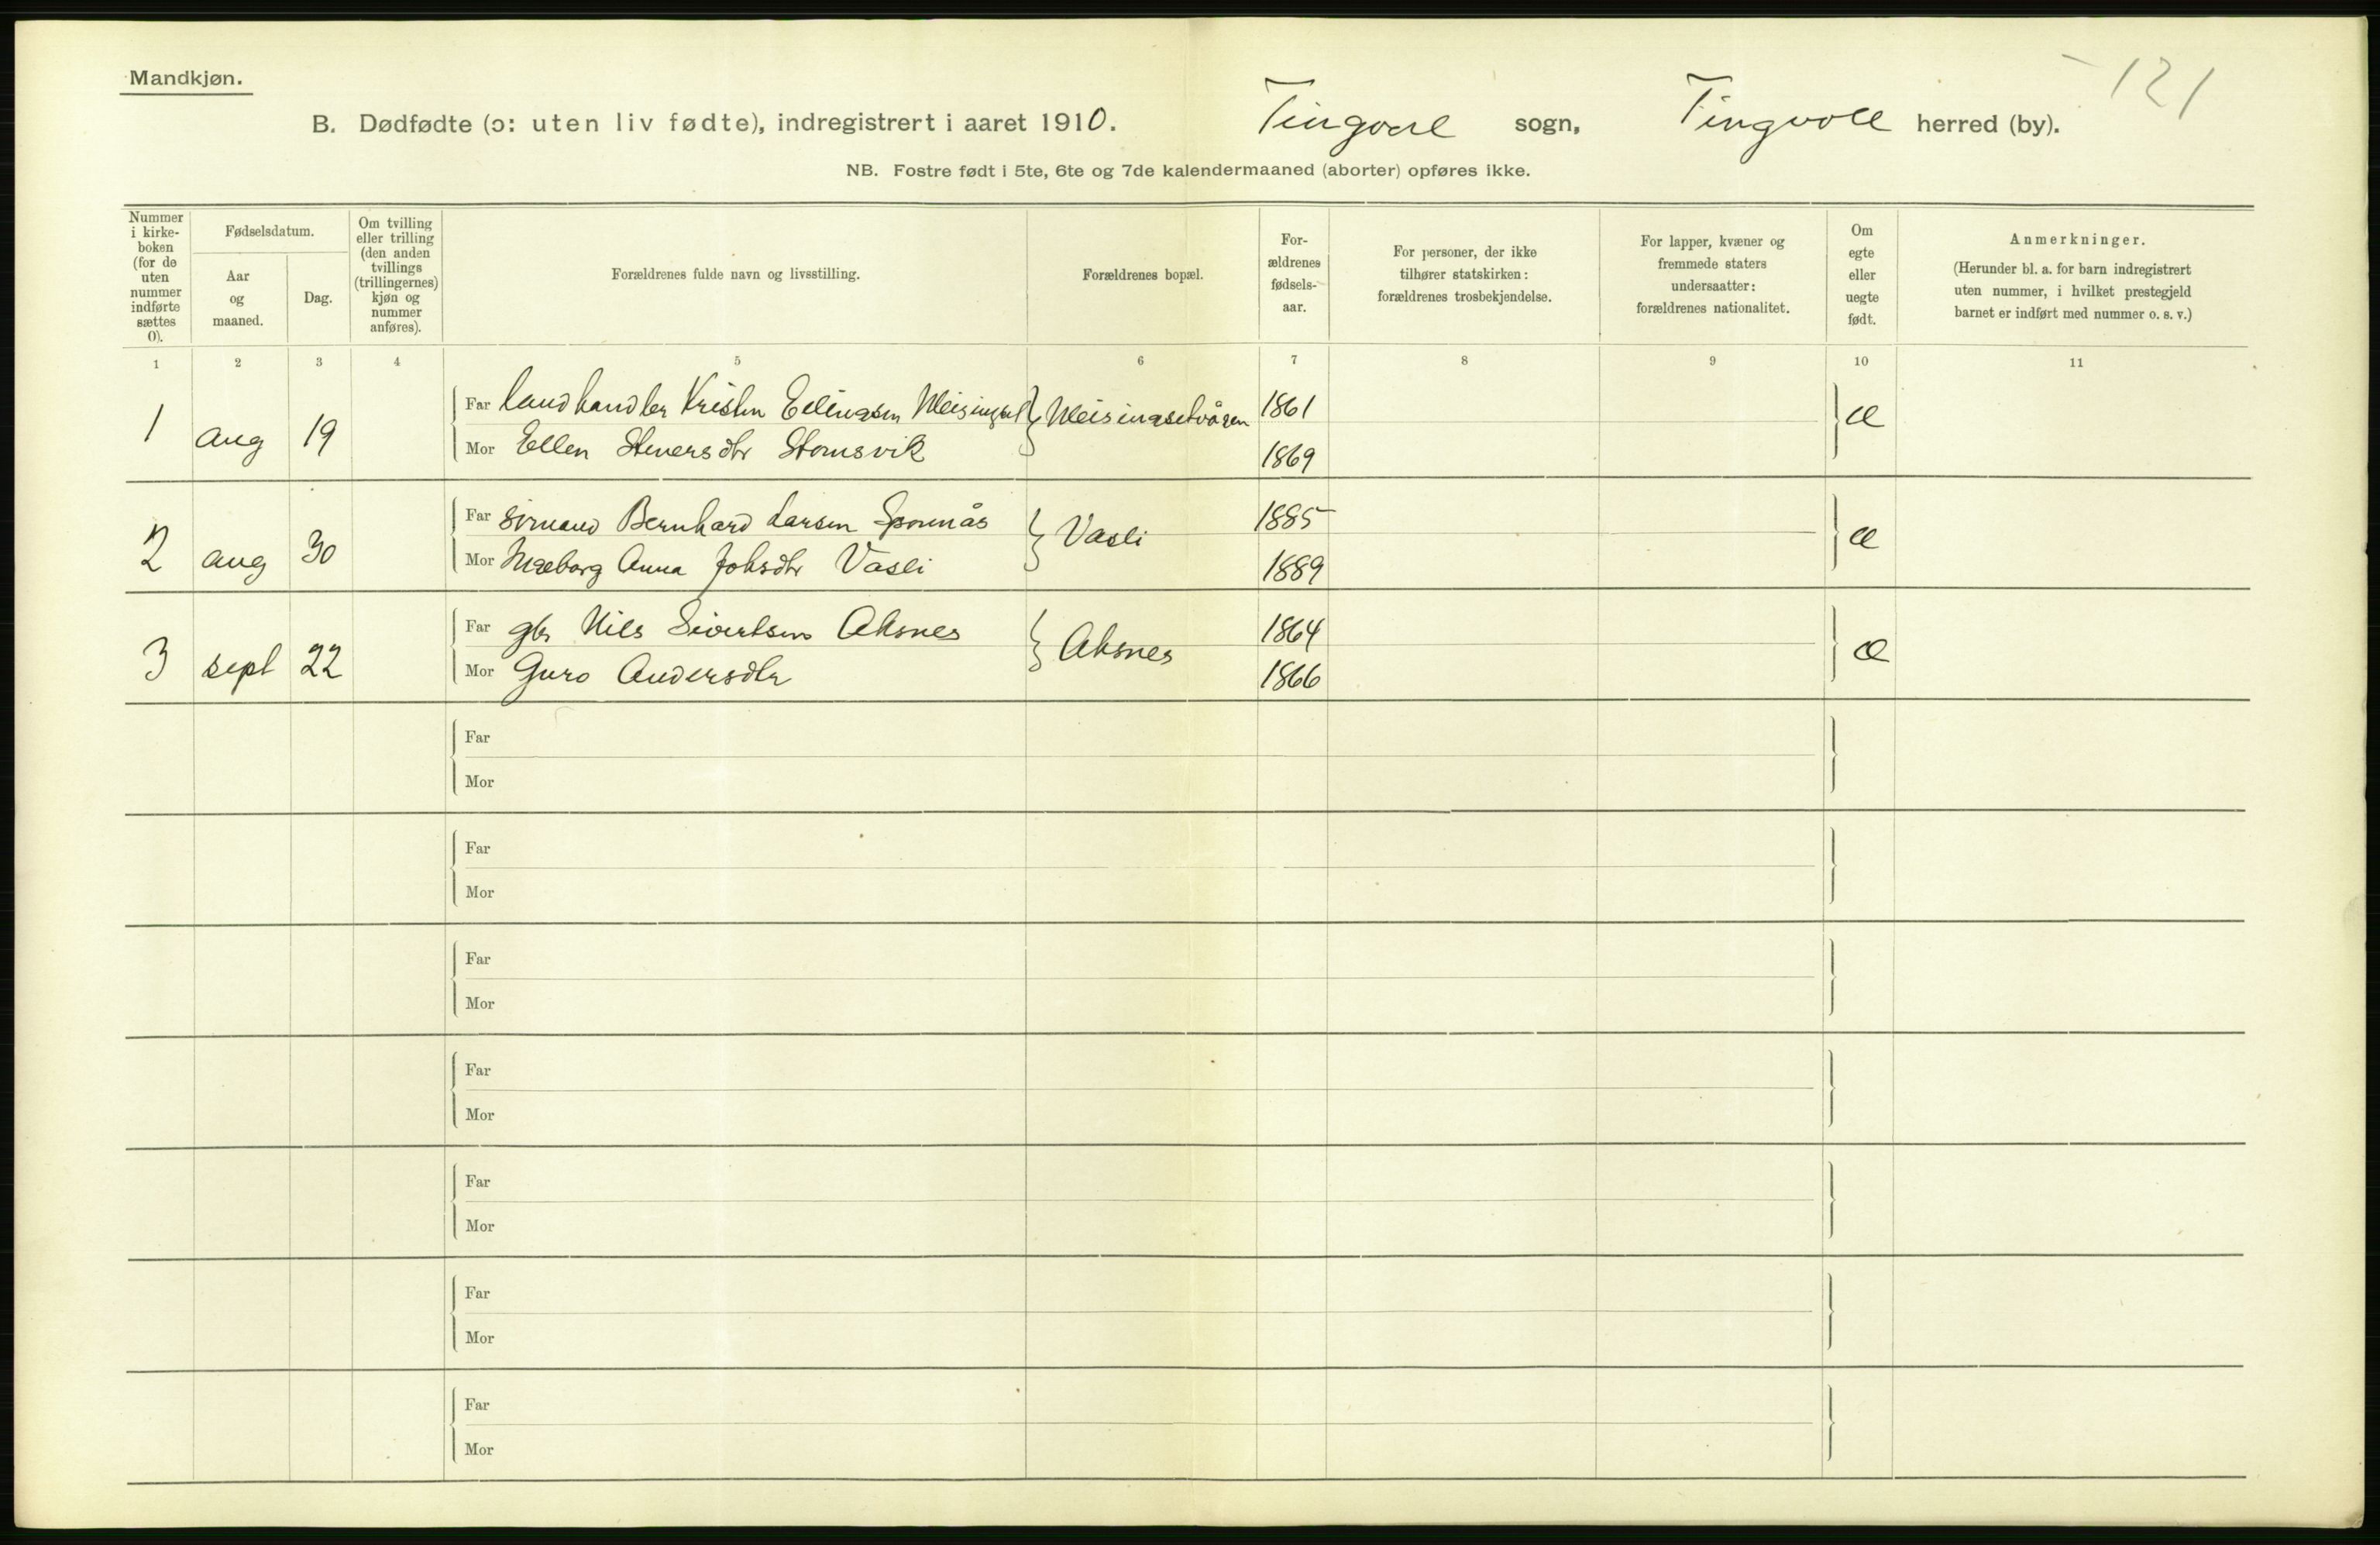 Mandkjøn.
121
B. Dødfødte (ɔ: uten liv fødte), indregistrert i aaret 1910. Tingvoll sogn, Tingvoll herred (by).
NB. Fostre født i 5te, 6te og 7de kalendermaaned (aborter) opføres ikke.
Nummer
i kirke-
boken
(for de
uten
nummer
indførte
sættes
0).
Fødselsdatum.
Aar
og
maaned.
Dag.
Om tvilling
eller trilling
(den anden
tvillings
(trillingernes)
kjøn og
nummer
anføres).
Forældrenes fulde navn og livsstilling.
Forældrenes bopæl.
For-
ældrenes
fødsels-
aar.
For personer, der ikke
tilhører statskirken:
forældrenes trosbekjendelse.
For lapper, kvæner og
fremmede staters
undersaatter:
forældrenes nationalitet.
Om
egte
eller
uegte
født.
Anmerkninger.
(Herunder bl. a. for barn indregistrert
uten nummer, i hvilket prestegjeld
barnet er indført med nummer o. s. v.)
1 2 3 4 5 6 7 8 9 10 11
1 aug 19 Far landhandler Kristen Ellingsen Meisingset Meisingsetvågen 1861 æ
Mor Ellen Steversdtr Stomsvik 1869
2 aug 30 Far Bernhard Larsen Vasli 1885 æ
Mor Ingeborg Anna Johsdtr Vasli 1889
3 sept 22 Far gbr Nils Sivertsen Aksnes Aksnes 1864 æ
Mor Guro Andersdtr 1866
Far
Mor
Far
Mor
Far
Mor
Far
Mor
Far
Mor
Far
Mor
Far
Mor